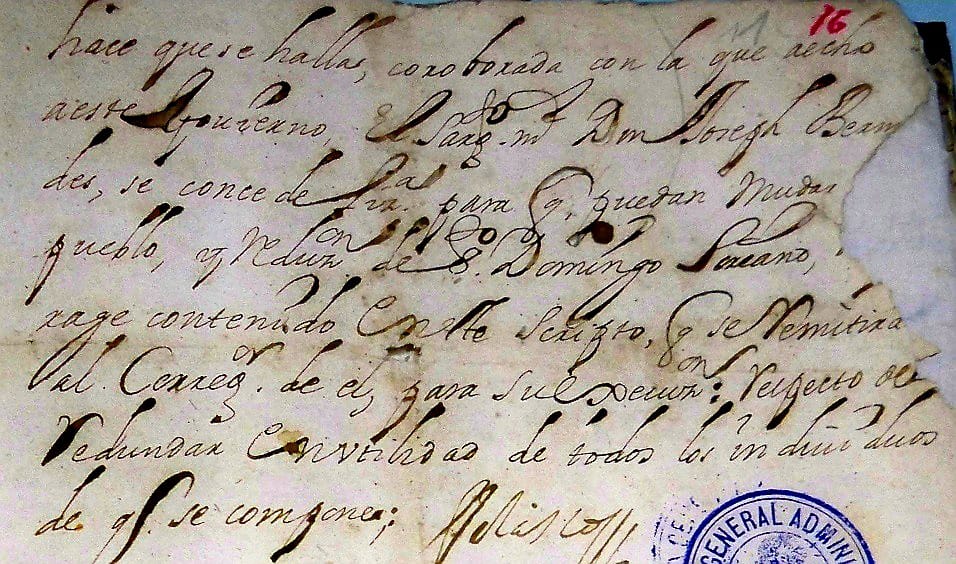 16
hace que se hallas, coroborada con la que aecho
aeste Gouierno, El Sargto. mr. Don Joseph Berm
des, se concede lizª. para q. puedan Mudar
pueblo, y Reduzon. de Sto. Domingo Soriano,
rage contenido En este scripto, q se Remitira
al Correg.or de el, para su Execuzon: Respecto de
Redundar En vtilidad de todos los indiuiduos
de q. se compone;
GENERAL ADMINI